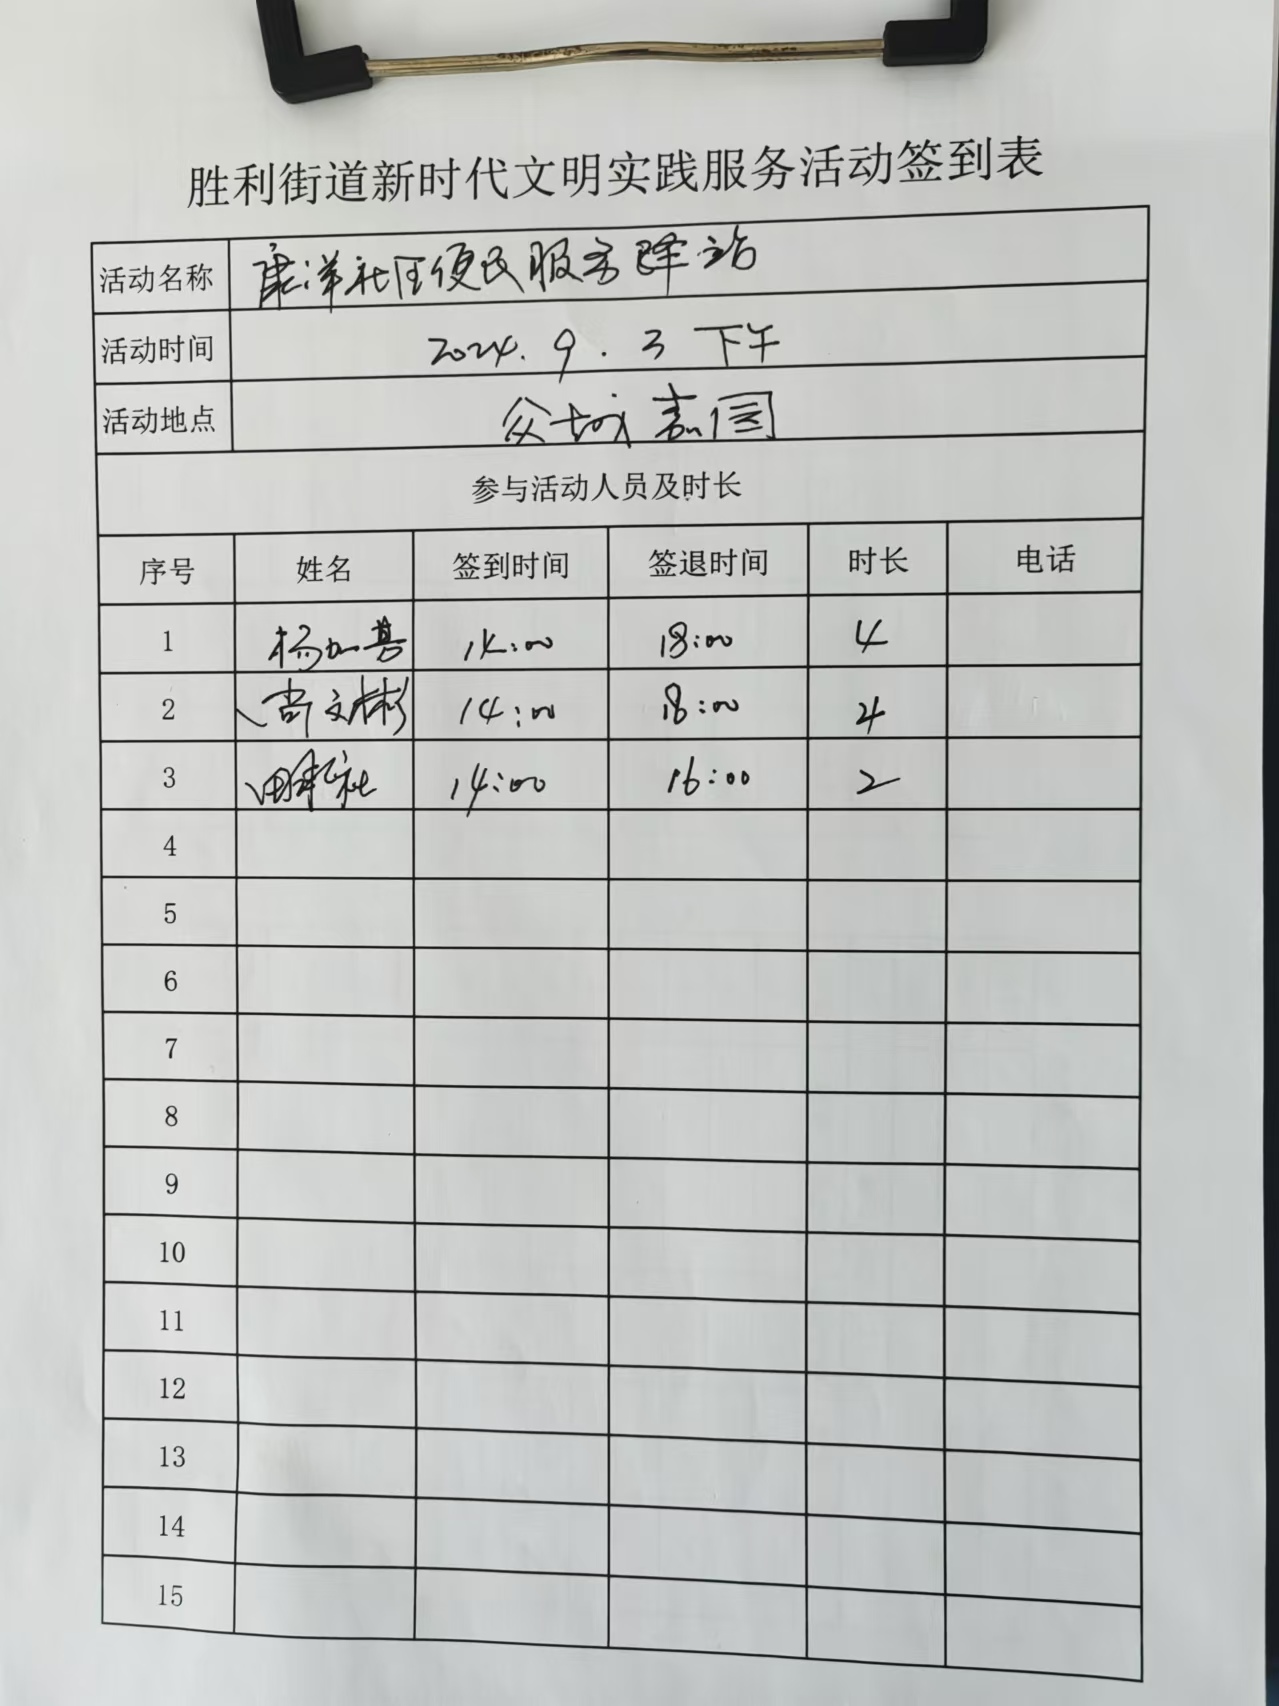 胜利街道新时代文明实践服务活动签到表
活动名称 康洋社区便民服务驿站
活动时间 2024.9.3 下午
活动地点 众城嘉园
参与活动人员及时长
序号 姓名 签到时间 签退时间 时长 电话
1 杨加善 14:00 18:00 4
2 尚文彬 14:00 18:00 4
3 田 14:00 16:00 2
4
5
6
7
8
9
10
11
12
13
14
15